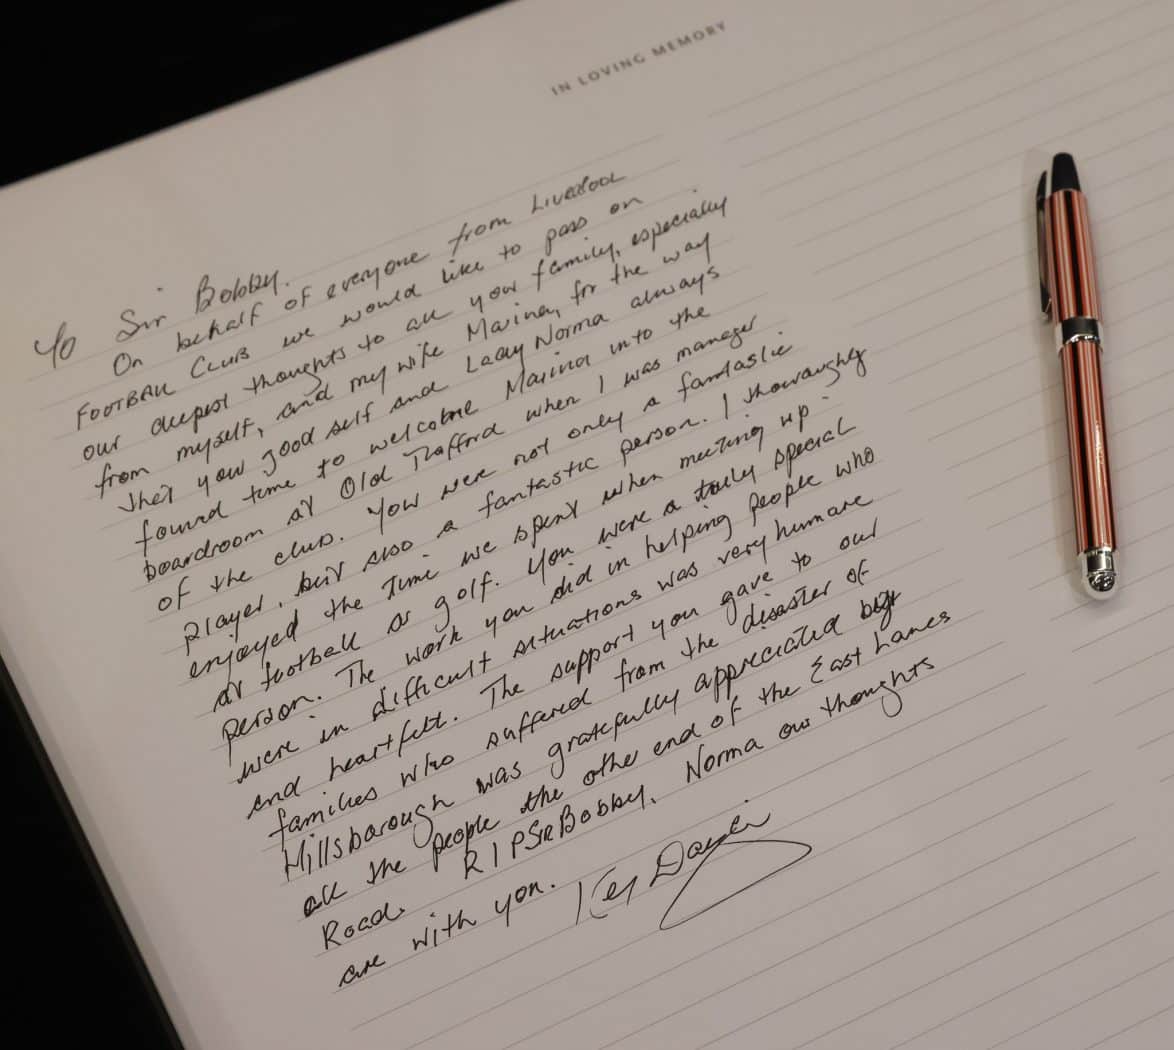 IN LOVING MEMORY
To Sir Bobby.
On behalf of everyone from LIVERPOOL
FOOTBALL CLUB we would like to pass on
our deepest thoughts to all your family, especially
from myself, and my wife Marina, for the way
that your good self and Lady Norma always
found time to welcome Marina into the
boardroom at Old Trafford when I was manager
of the club. You were not only a fantastic
player, but also a fantastic person. I thoroughly
enjoyed the time we spent when meeting up
at football or golf. You were a truly special
person. The work you did in helping people who
were in difficult situations was very humane
and heartfelt. The support you gave to our
families who suffered from the disaster of
Hillsborough was gratefully appreciated by
all the people the other end of the East Lancs
Road. R I P SIR Bobby. Norma our thoughts
are with you. Kenny Dalglish